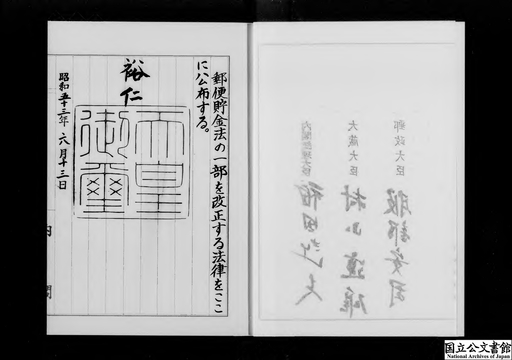 郵便貯金法の一部を改正する法律をここ
に公布する。
裕仁
天皇
御璽
昭和五十三年六月十三日
内
閣
郵政大臣
服部安司
大蔵大臣
村山達雄
内閣総理大臣
福田赳夫
国立公文書館
National Archives of Japan